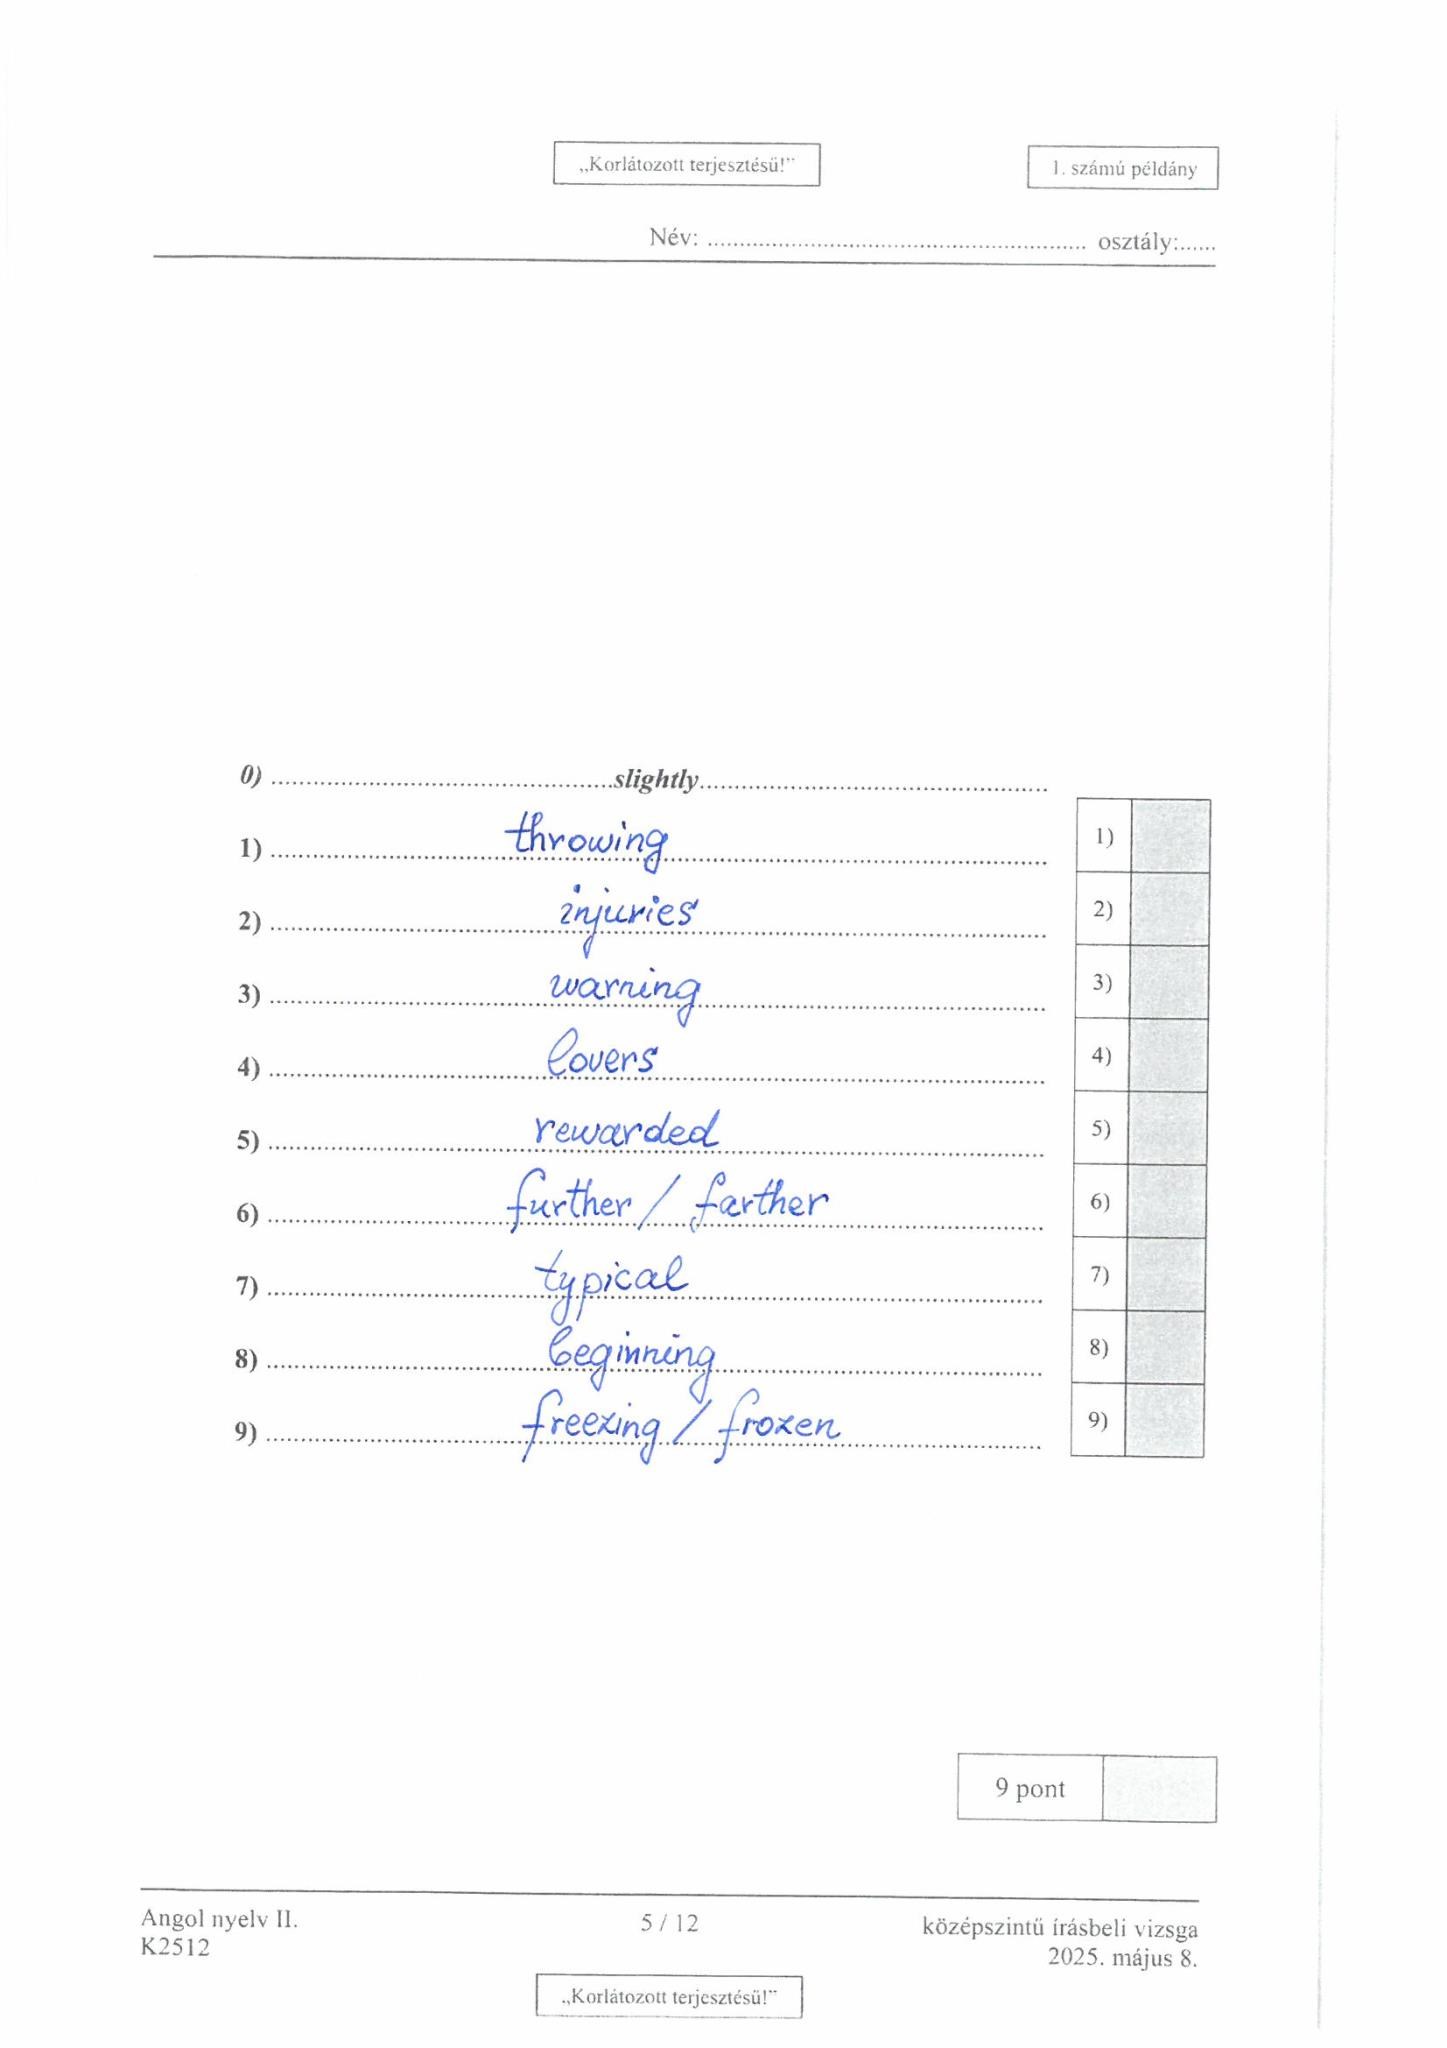 „Korlátozott terjesztésű!”
1. számú példány
Név: ........................................................ osztály:......
0) ..................................................slightly..................................................
1) throwing
2) injuries
3) warning
4) lovers
5) rewarded
6) further / farther
7) typical
8) beginning
9) freezing / frozen
1)
2)
3)
4)
5)
6)
7)
8)
9)
9 pont
Angol nyelv II.
K2512
5 / 12
középszintű írásbeli vizsga
2025. május 8.
„Korlátozott terjesztésű!”